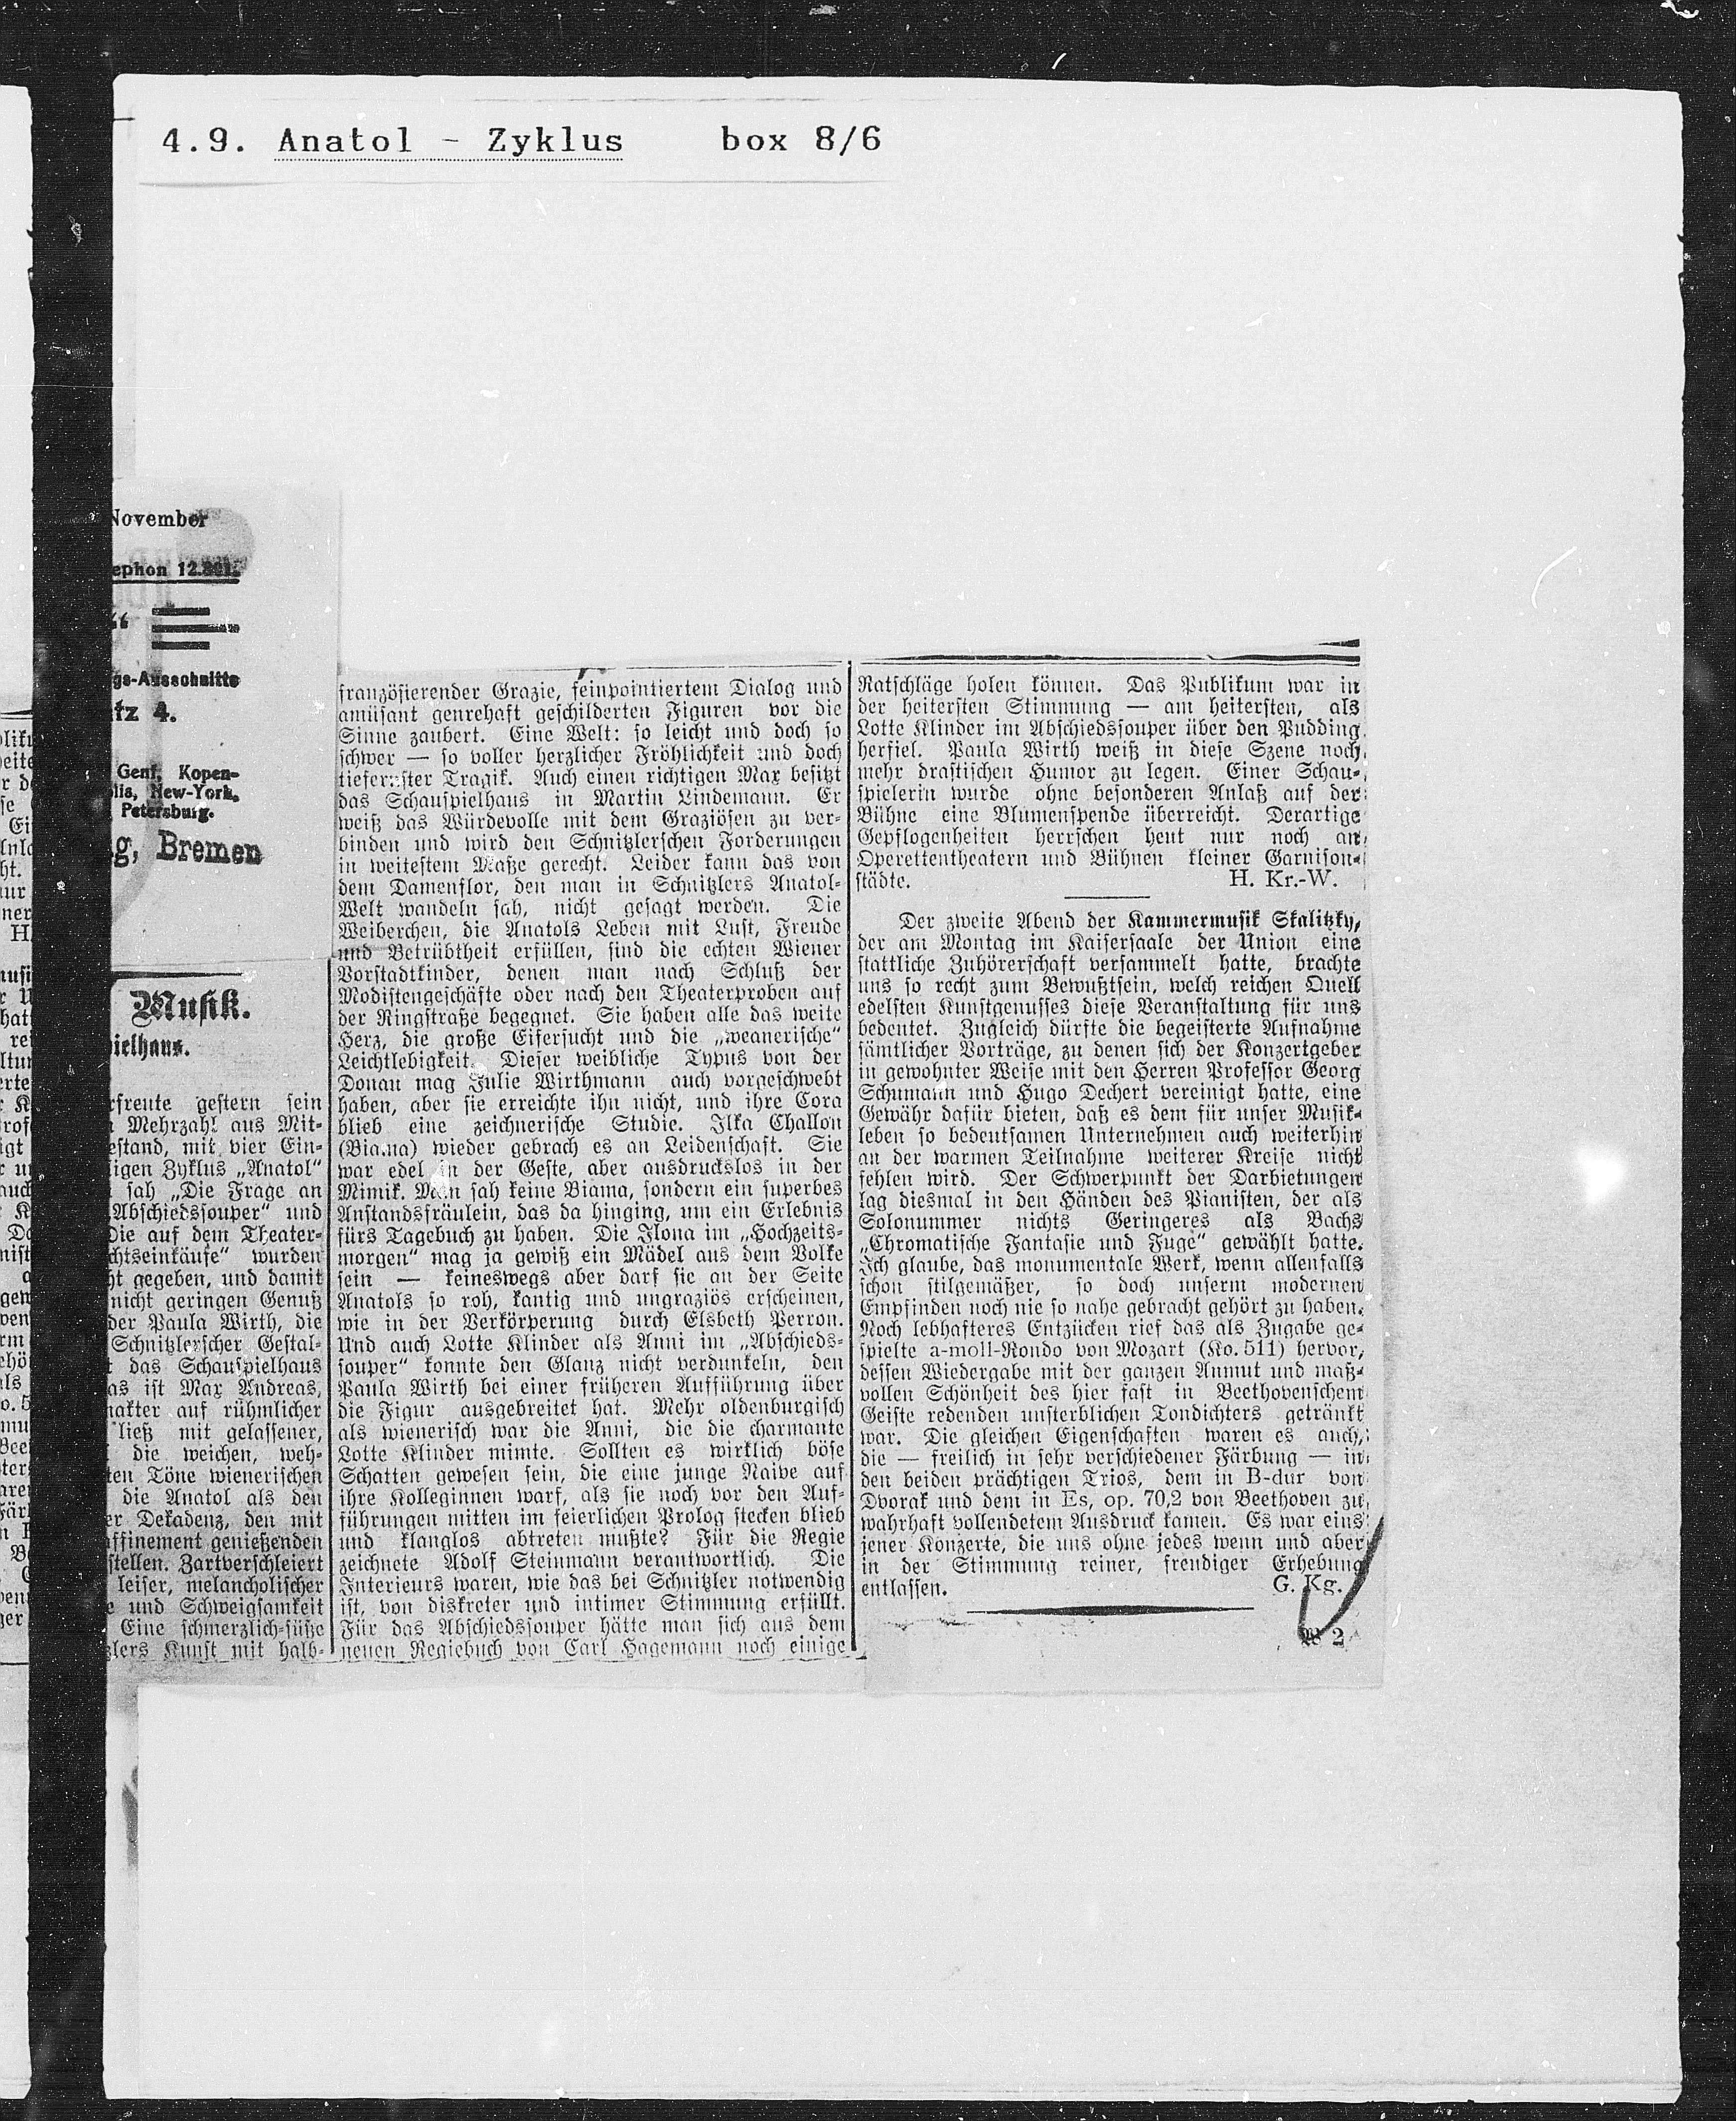 4.9. Anatol - Zyklus box 8/6
November
ephon
gs-Ausschnitte
tz 4.
Genf, Kopen-
lis, New-York,
Petersburg.
g, Bremen
Musik.
ielhaus.
rfreute gestern sein
Mehrzahl aus Mit-
estand, mit vier Ein-
igen Zyklus „Anatol“
sah „Die Frage an
Abschiedssouper“ und
Die auf dem Theater-
chtseinkäufe“ wurden
ht gegeben, und damit
nicht geringen Genuß
der Paula Wirth, die
Schnitzlerscher Gestal-
das Schauspielhaus
as ist Max Andreas,
rakter auf rühmlicher
ließ mit gelassener,
die weichen, weh-
ten Töne wienerischen
die Anatol als den
er Dekadenz, den mit
affinement genießenden
stellen. Zartverschleiert
leiser, melancholischer
e und Schweigsamkeit
Eine schmerzlich-süße
zlers Kunst mit halb-
französierender Grazie, feinpointiertem Dialog und
amüsant genrehaft geschilderten Figuren vor die
Sinne zaubert. Eine Welt: so leicht und doch so
schwer — so voller herzlicher Fröhlichkeit und doch
tiefernster Tragik. Auch einen richtigen Max besitzt
das Schauspielhaus in Martin Lindemann. Er
weiß das Würdevolle mit dem Graziösen zu ver-
binden und wird den Schnitzlerschen Forderungen
in weitestem Maße gerecht. Leider kann das von
dem Damenflor, den man in Schnitzlers Anatol-
Welt wandeln sah, nicht gesagt werden. Die
Weiberchen, die Anatols Leben mit Lust, Freude
und Betrübtheit erfüllen, sind die echten Wiener
Vorstadtkinder, denen man nach Schluß der
Modistengeschäfte oder nach den Theaterproben auf
der Ringstraße begegnet. Sie haben alle das weite
Herz, die große Eifersucht und die „weanerische“
Leichtlebigkeit. Dieser weibliche Typus von der
Donau mag Julie Wirthmann auch vorgeschwebt
haben, aber sie erreichte ihn nicht, und ihre Cora
blieb eine zeichnerische Studie. Ilka Challon
(Bianna) wieder gebrach es an Leidenschaft. Sie
war edel in der Geste, aber ausdruckslos in der
Mimik. Man sah keine Biama, sondern ein superbes
Anstandsfräulein, das da hinging, um ein Erlebnis
fürs Tagebuch zu haben. Die Ilona im „Hochzeits-
morgen“ mag ja gewiß ein Mädel aus dem Volke
sein — keineswegs aber darf sie an der Seite
Anatols so roh, kantig und ungraziös erscheinen,
wie in der Verkörperung durch Elsbeth Perron.
Und auch Lotte Klinder als Anni im „Abschieds-
souper“ konnte den Glanz nicht verdunkeln, den
Paula Wirth bei einer früheren Aufführung über
die Figur ausgebreitet hat. Mehr oldenburgisch
als wienerisch war die Anni, die die charmante
Lotte Klinder mimte. Sollten es wirklich böse
Schatten gewesen sein, die eine junge Naive auf
ihre Kolleginnen warf, als sie noch vor den Auf-
führungen mitten im feierlichen Prolog stecken blieb
und klanglos abtreten mußte? Für die Regie
zeichnete Adolf Steinmann verantwortlich. Die
Interieurs waren, wie das bei Schnitzler notwendig
ist, von diskreter und intimer Stimmung erfüllt.
Für das Abschiedssouper hätte man sich aus dem
neuen Regiebuch von Carl Hagemann noch einige
Ratschläge holen können. Das Publikum war in
der heitersten Stimmung — am heitersten, als
Lotte Klinder im Abschiedssouper über den Pudding
herfiel. Paula Wirth weiß in diese Szene noch
mehr drastischen Humor zu legen. Einer Schau-
spielerin wurde ohne besonderen Anlaß auf der
Bühne eine Blumenspende überreicht. Derartige
Gepflogenheiten herrschen heut nur noch an
Operettentheatern und Bühnen kleiner Garnison-
städte. H. Kr.-W.
Der zweite Abend der Kammermusik Skalitzky,
der am Montag im Kaisersaale der Union eine
stattliche Zuhörerschaft versammelt hatte, brachte
uns so recht zum Bewußtsein, welch reichen Quell
edelsten Kunstgenusses diese Veranstaltung für uns
bedeutet. Zugleich dürfte die begeisterte Aufnahme
sämtlicher Vorträge, zu denen sich der Konzertgeber
in gewohnter Weise mit den Herren Professor Georg
Schumann und Hugo Dechert vereinigt hatte, eine
Gewähr dafür bieten, daß es dem für unser Musik-
leben so bedeutsamen Unternehmen auch weiterhin
an der warmen Teilnahme weiterer Kreise nicht
fehlen wird. Der Schwerpunkt der Darbietungen
lag diesmal in den Händen des Pianisten, der als
Solonummer nichts Geringeres als Bachs
„Chromatische Fantasie und Fuge“ gewählt hatte.
Ich glaube, das monumentale Werk, wenn allenfalls
schon stilgemäßer, so doch unserm modernen
Empfinden noch nie so nahe gebracht gehört zu haben.
Noch lebhafteres Entzücken rief das als Zugabe ge-
spielte a-moll-Rondo von Mozart (Ko. 511) hervor,
dessen Wiedergabe mit der ganzen Anmut und maß-
vollen Schönheit des hier fast in Beethovenschem
Geiste redenden unsterblichen Tondichters getränkt
war. Die gleichen Eigenschaften waren es auch,
die — freilich in sehr verschiedener Färbung — in
den beiden prächtigen Trios, dem in B-dur von
Dvorak und dem in Es, op. 70,2 von Beethoven zu
wahrhaft vollendetem Ausdruck kamen. Es war eins
jener Konzerte, die uns ohne jedes wenn und aber
in der Stimmung reiner, freudiger Erhebung
entlassen. G. Kg.
2